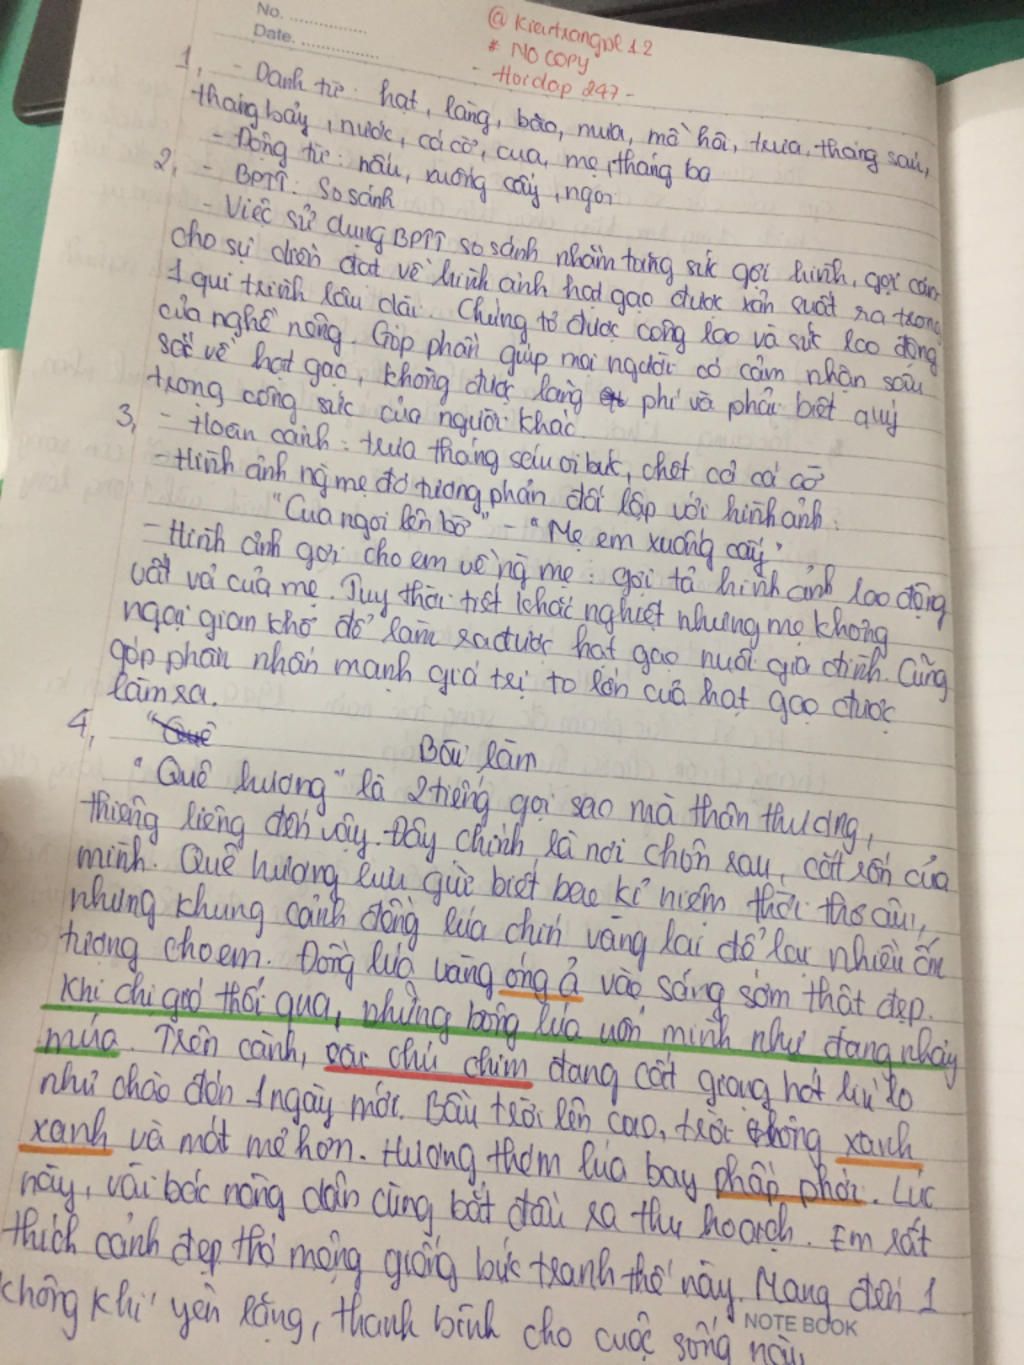 No. ...............
Date. ...............
@ Kieutrangpl 12
* NO COPY
- Hoidap 247 -
1, - Danh từ: hạt, làng, bão, mưa, mồ hôi, trưa, tháng sáu,
tháng bảy, nước, cá cờ, cua, mẹ, tháng ba
- Động từ: nấu, xuống cấy, ngoi
2, - BPTT: So sánh
- Việc sử dụng BPTT so sánh nhằm tăng sức gợi hình, gợi cảm
cho sự diễn đạt về hình ảnh hạt gạo được xản suất ra trong
1 qui trình lâu dài. Chứng tỏ được công lao và sức lao động
của nghề nông. Góp phần giúp mọi người có cảm nhận sâu
sắc về hạt gạo, không được lãng phí và phải biết quý
trọng công sức của người khác.
3, - Hoàn cảnh: trưa tháng sáu oi bức, chết cả cá cờ
- Hình ảnh ng mẹ đó tương phản đối lập với hình ảnh:
"Cua ngoi lên bờ" - "Mẹ em xuống cấy"
- Hình ảnh gợi cho em về ng mẹ: gợi tả hình ảnh lao động
vất vả của mẹ. Tuy thời tiết khắc nghiệt nhưng mẹ không
ngại gian khổ để làm ra được hạt gạo nuôi gia đình. Cũng
góp phần nhấn mạnh giá trị to lớn của hạt gạo được
làm ra.
4, "Quê
Bài làm
"Quê hương" là 2 tiếng gọi sao mà thân thương,
thiêng liêng đến vậy. Đây chính là nơi chôn rau, cắt rốn của
mình. Quê hương lưu giữ biết bao kỉ niệm thời thơ ấu,
nhưng khung cảnh đồng lúa chín vàng lại để lại nhiều ấn
tượng cho em. Đồng lúa vàng óng ả vào sáng sớm thật đẹp.
Khi chị gió thổi qua, những bông lúa uốn mình như đang nhảy
múa. Trên cành, các chú chim đang cất giọng hót líu lo
như chào đón 1 ngày mới. Bầu trời lên cao, trời trong xanh
xanh và mát mẻ hơn. Hương thơm lúa bay phấp phới. Lúc
này, vài bác nông dân cũng bắt đầu ra thu hoạch. Em rất
thích cảnh đẹp thơ mộng giống bức tranh thế này. Mang đến 1
không khí yên lặng, thanh bình cho cuộc sống này
NOTE BOOK